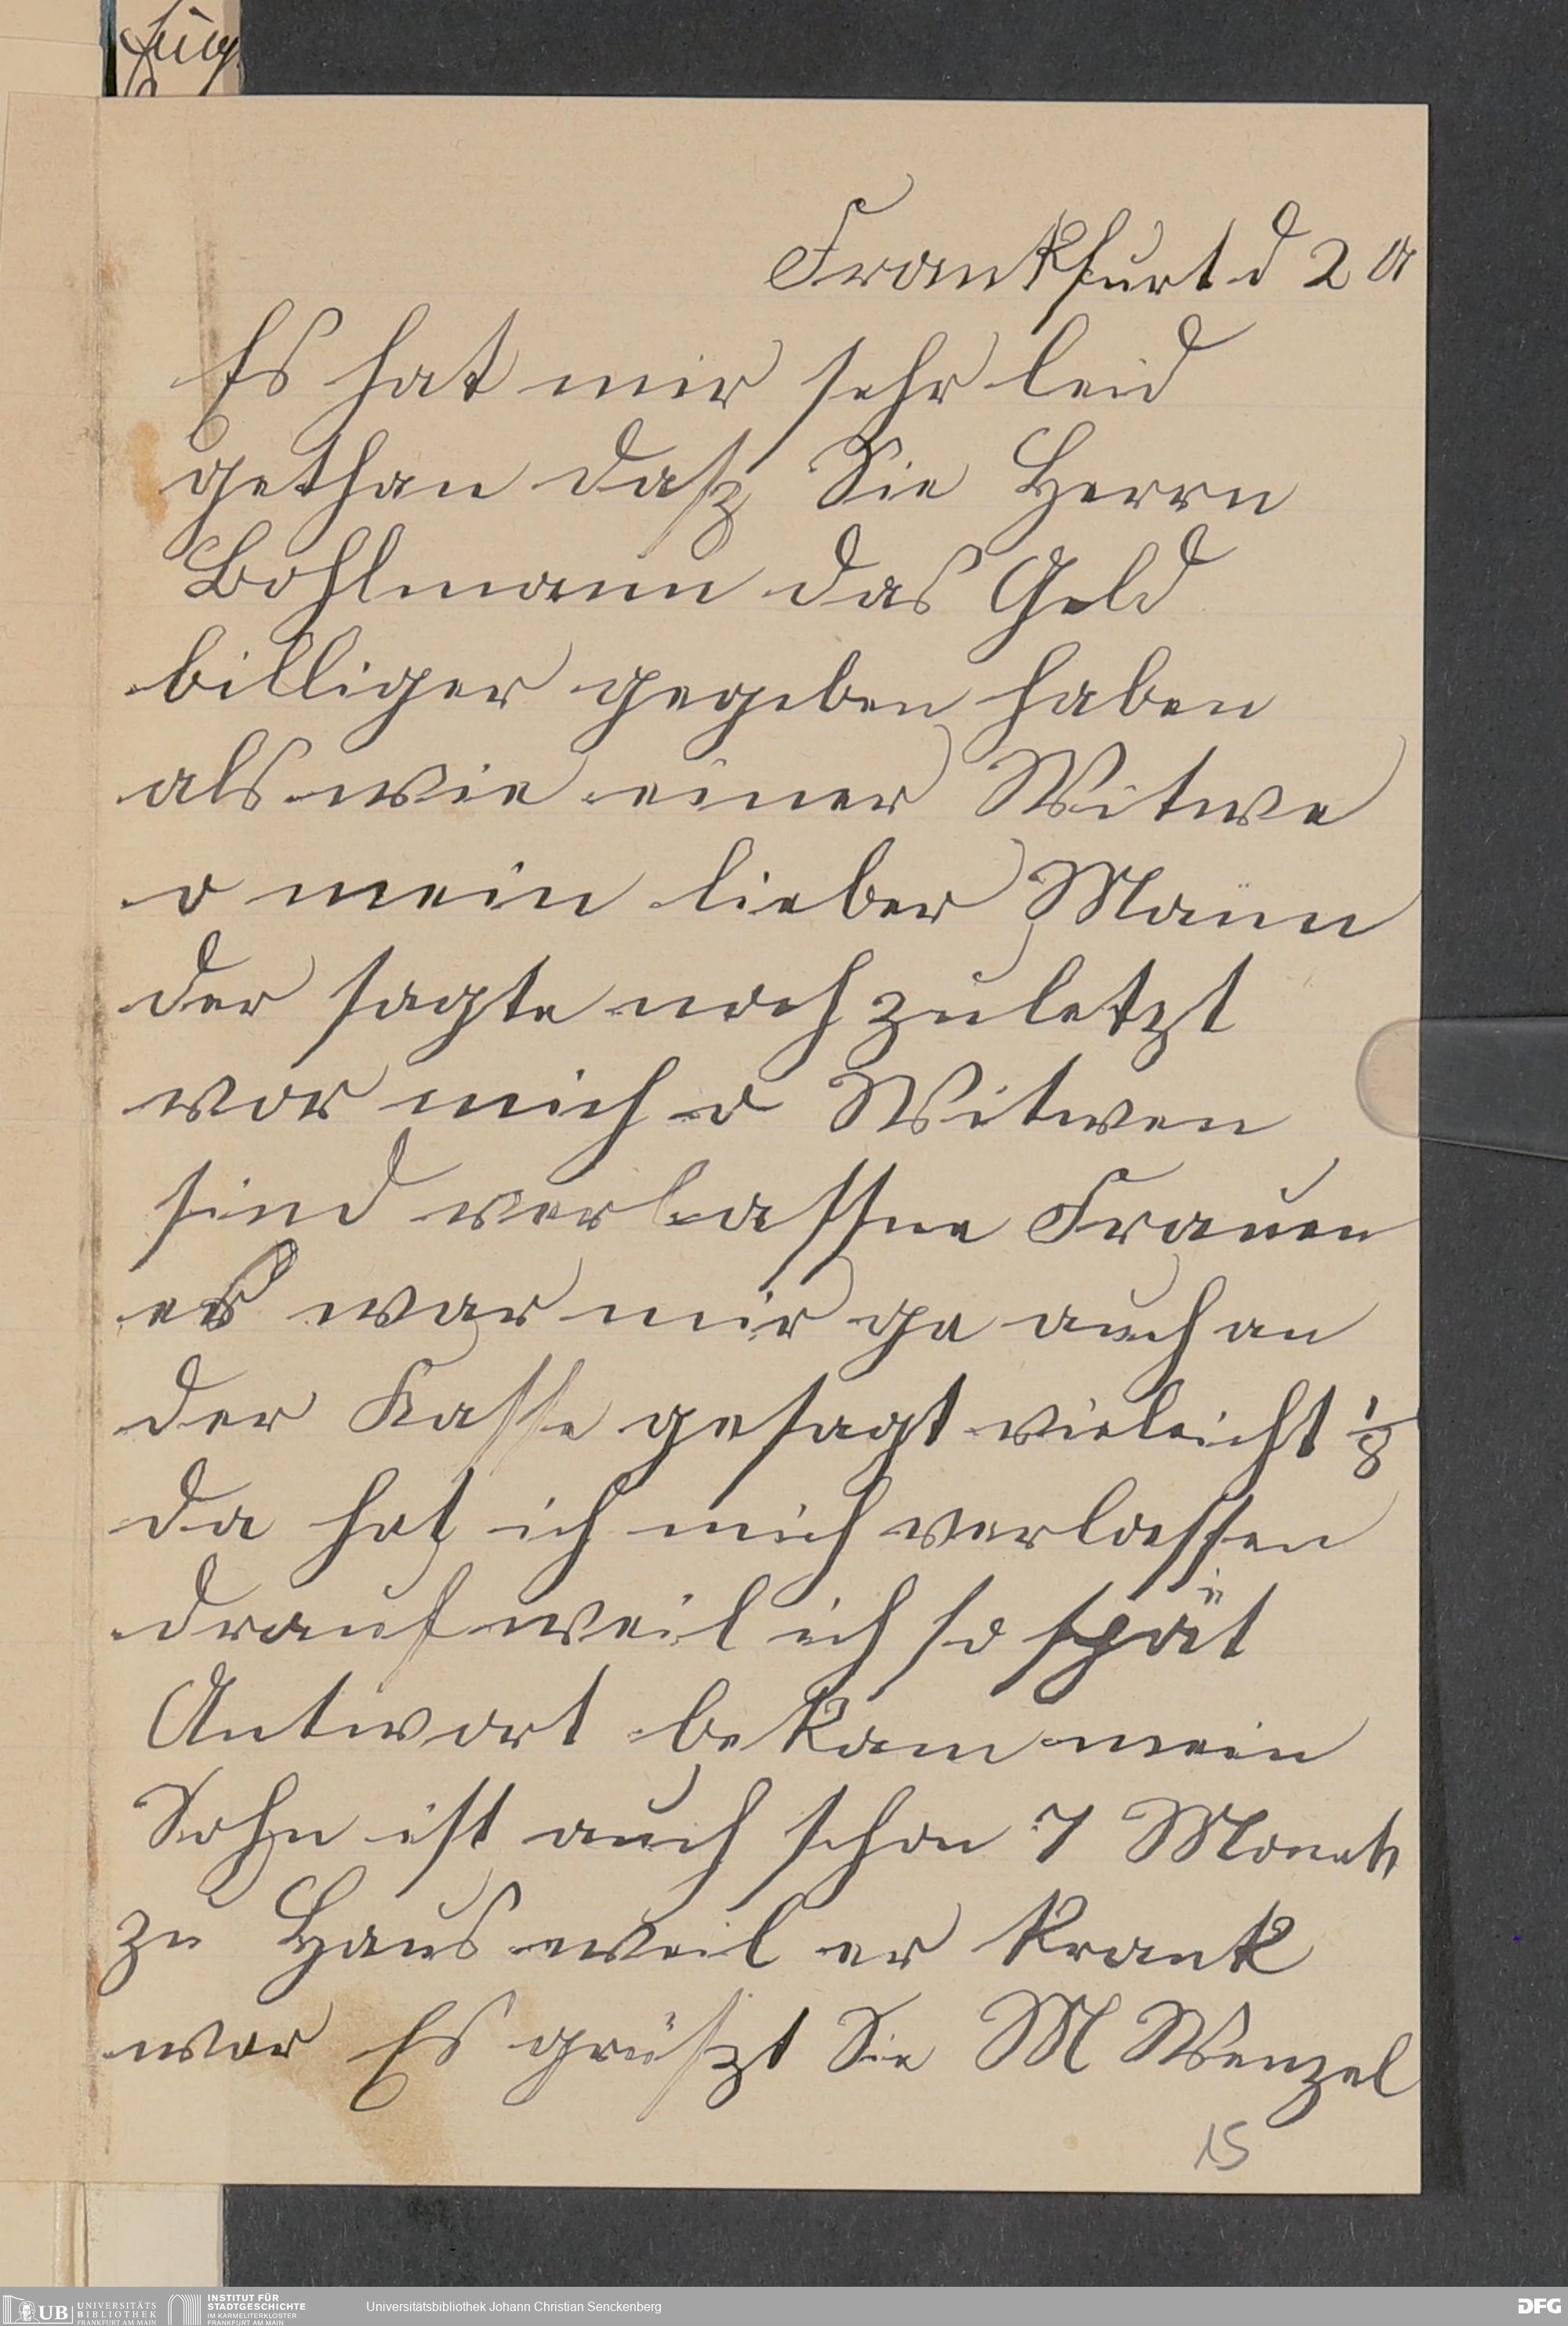 Frankfurt d 2 A
Es hat mir sehr leid
gethan daß Sie Herrn
Bohlmann das Geld
billiger gegeben haben
als wie einer Witwe
o mein lieber Mann
der sagte noch zuletzt
vor mich o Witwen
sind verlassne Frauen
es war mir ga auch an
der Kasse gesagt vieleicht 1/8
da hat ich mich verlassen
drauf weil ich so spät
Antwort bekam mein
Sohn ist auch schon 7 Monat
zu Haus weil er krank
war Es grüßt Sie M Wenzel
15
UB UNIVERSITÄTS BIBLIOTHEK JOHANN CHRISTIAN SENCKENBERG FRANKFURT AM MAIN
INSTITUT FÜR STADTGESCHICHTE IM KARMELITERKLOSTER FRANKFURT AM MAIN
Universitätsbibliothek Johann Christian Senckenberg
DFG